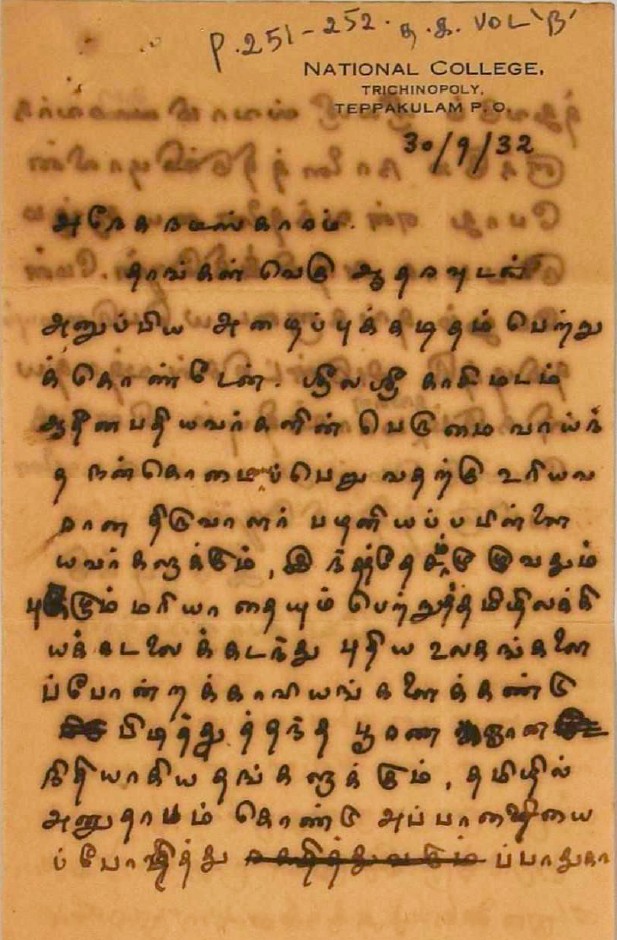 P.251-252. த.க. VOL 'B'
NATIONAL COLLEGE,
TRICHINOPOLY,
TEPPAKULAM P.O.
30/9/32
அநேக நமஸ்காரம்.
தாங்கள் வெகு ஆதரவுடன்
அனுப்பிய அழைப்புக்கடிதம் பெற்று
க்கொண்டேன். ஸ்ரீலஸ்ரீ காசிமடம்
ஆதீனபதியவர்களின் பெருமை வாய்ந்
த நன்கொடைப்பெறுவதற்கு உரியவ
ரான திருவாளர் பழனியப்பபிள்ளை
யவர்களுக்கும்,
புகழும் மரியாதையும் பெற்று தமிழிலக்கி
யக்கடலைக்கடந்து புதிய உலகங்களை
ப்போன்ற க்காவியங்களைக்கண்டு
பிடித்து த்தந்த பூரண ஞான
நிதியாகிய தங்களுக்கும், தமிழில்
அனுதாபம் கொண்டு அப்பாஷையை
ப்போஷித்து ப்பாதுகா